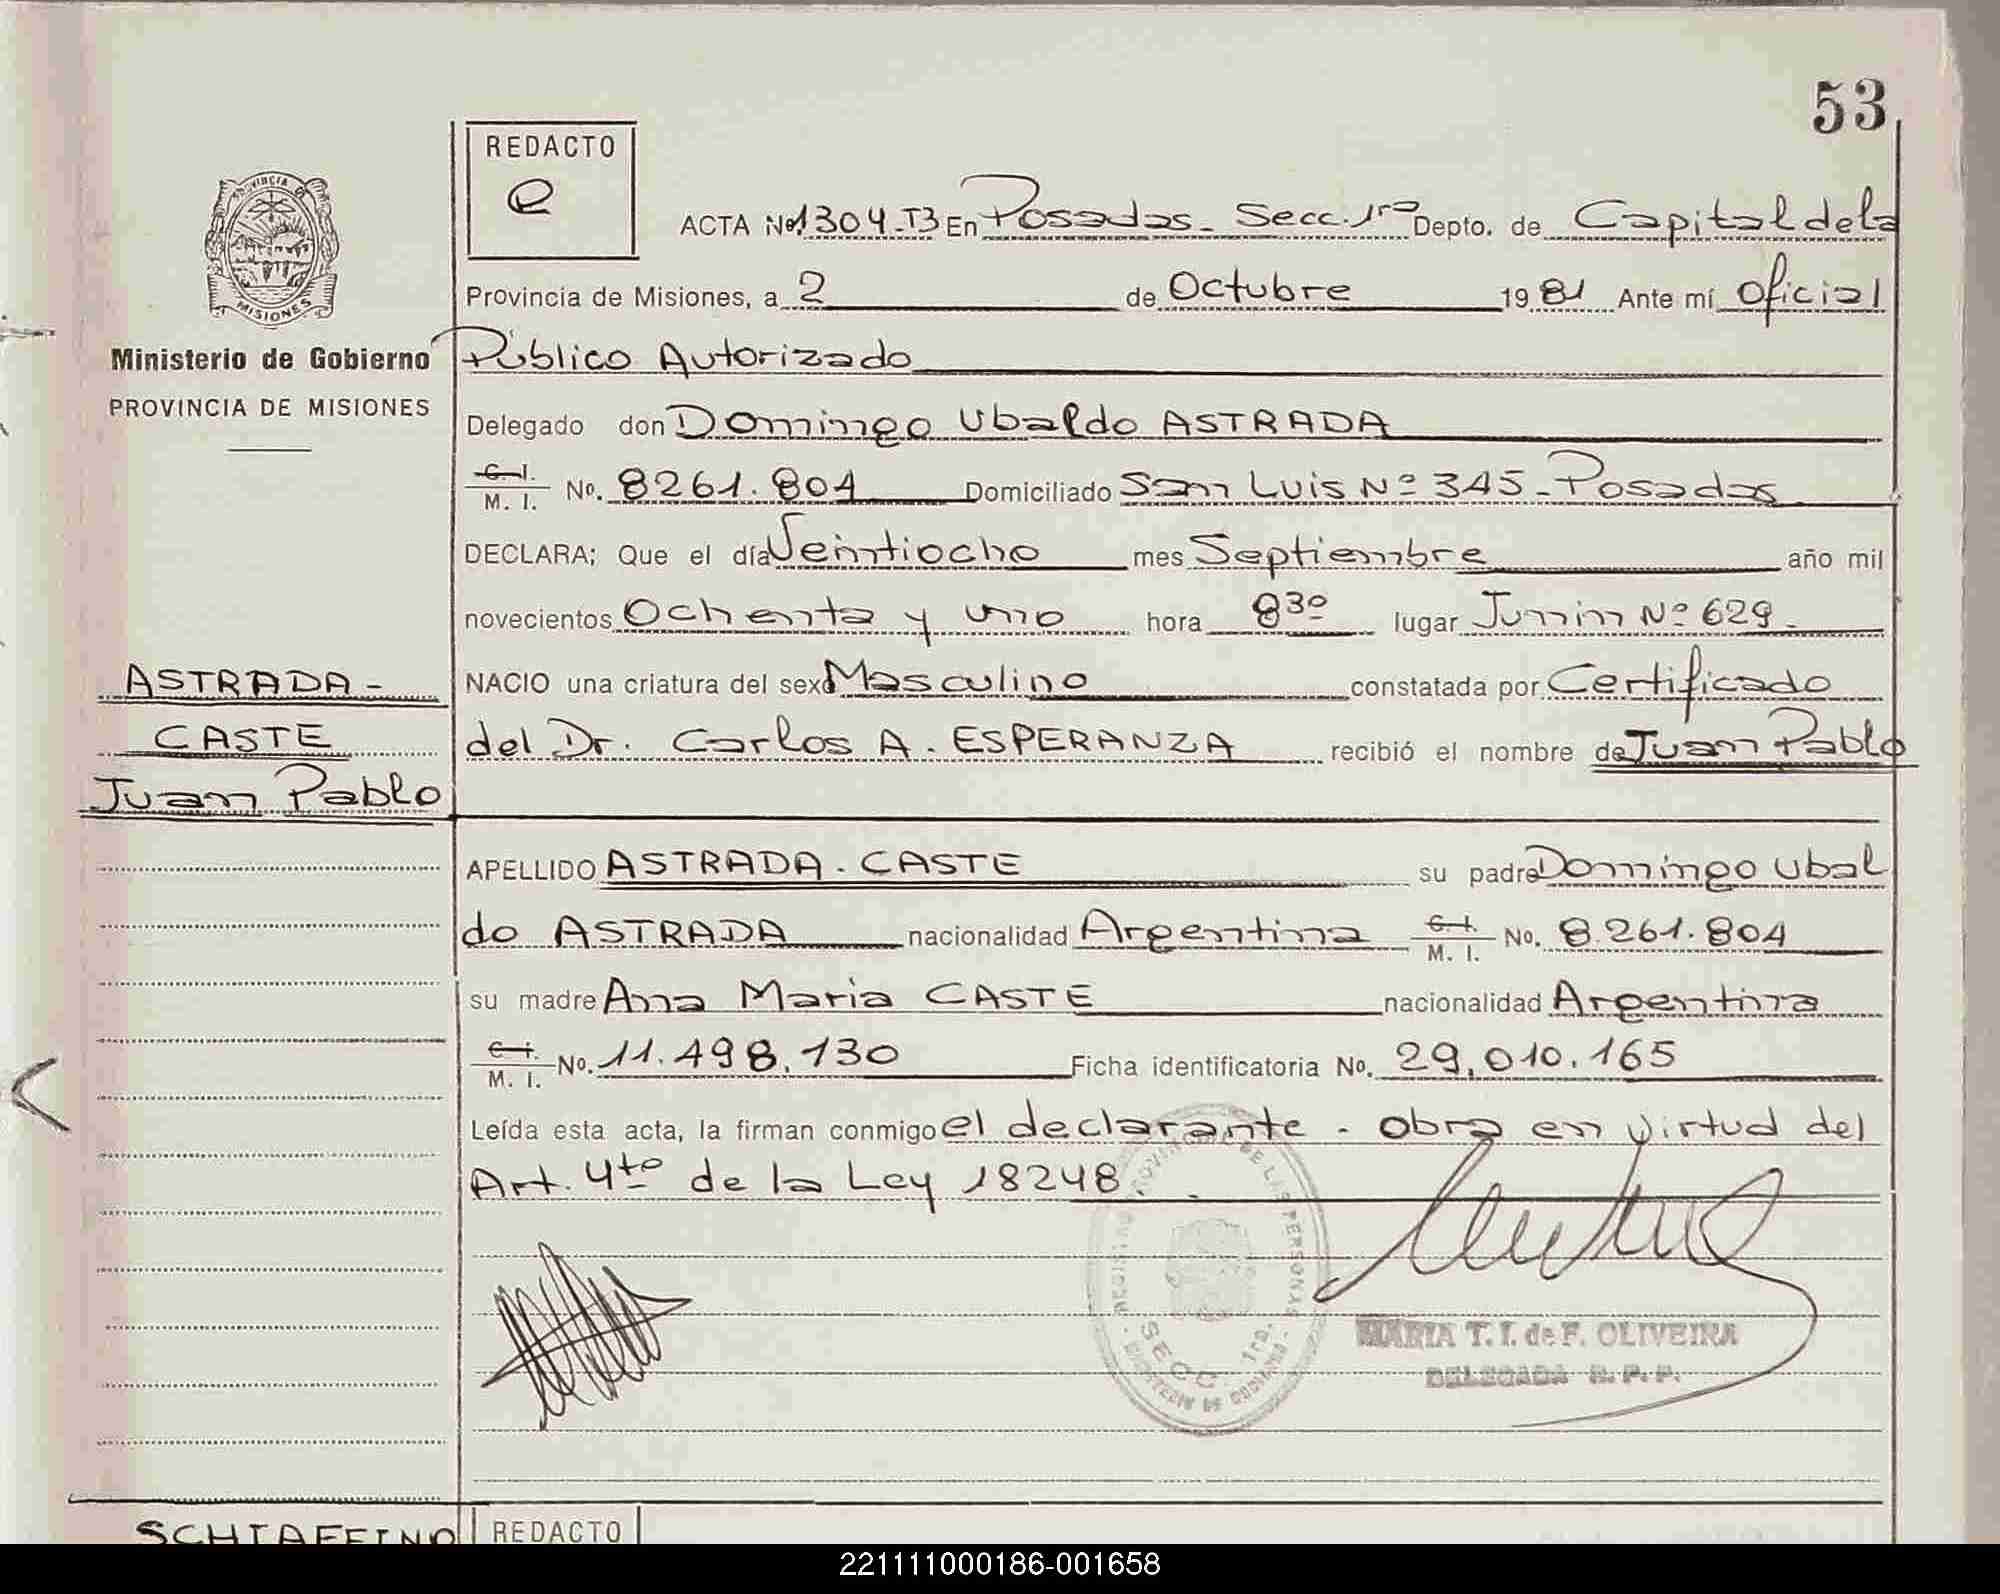 53
REDACTO
e
ACTA No 1304-T3 En Posadas - Secc. 1ra Depto. de Capital de la
Provincia de Misiones, a 2 de Octubre 1981 Ante mí Oficial
Público Autorizado
Delegado don Domingo Ubaldo ASTRADA
C. I.
M. I. No. 8261.804 Domiciliado San Luis Nº 345 - Posadas
DECLARA; Que el día Veintiocho mes Septiembre año mil
novecientos Ochenta y uno hora 8 30 lugar Junin Nº 629 -
NACIO una criatura del sexo Masculino constatada por Certificado
del Dr. Carlos A. ESPERANZA recibió el nombre de Juan Pablo
APELLIDO ASTRADA - CASTE su padre Domingo Ubal
do ASTRADA nacionalidad Argentina C. I.
M. I. No. 8.261.804
su madre Ana Maria CASTE nacionalidad Argentina
C. I.
M. I. No. 11.498.130 Ficha identificatoria No. 29.010.165
Leída esta acta, la firman conmigo el declarante - obra en virtud del
Art. 4to de la Ley 18248.
PROVINCIA DE
MISIONES
Ministerio de Gobierno
PROVINCIA DE MISIONES
ASTRADA -
CASTE
Juan Pablo
REGISTRO PROVINCIAL DE LAS PERSONAS
SECC. 1ra.
MINISTERIO DE GOBIERNO
MARIA T. I. de F. OLIVEIRA
DELEGADA R. P. P.
SCHIAFFINO
REDACTO
221111000186-001658